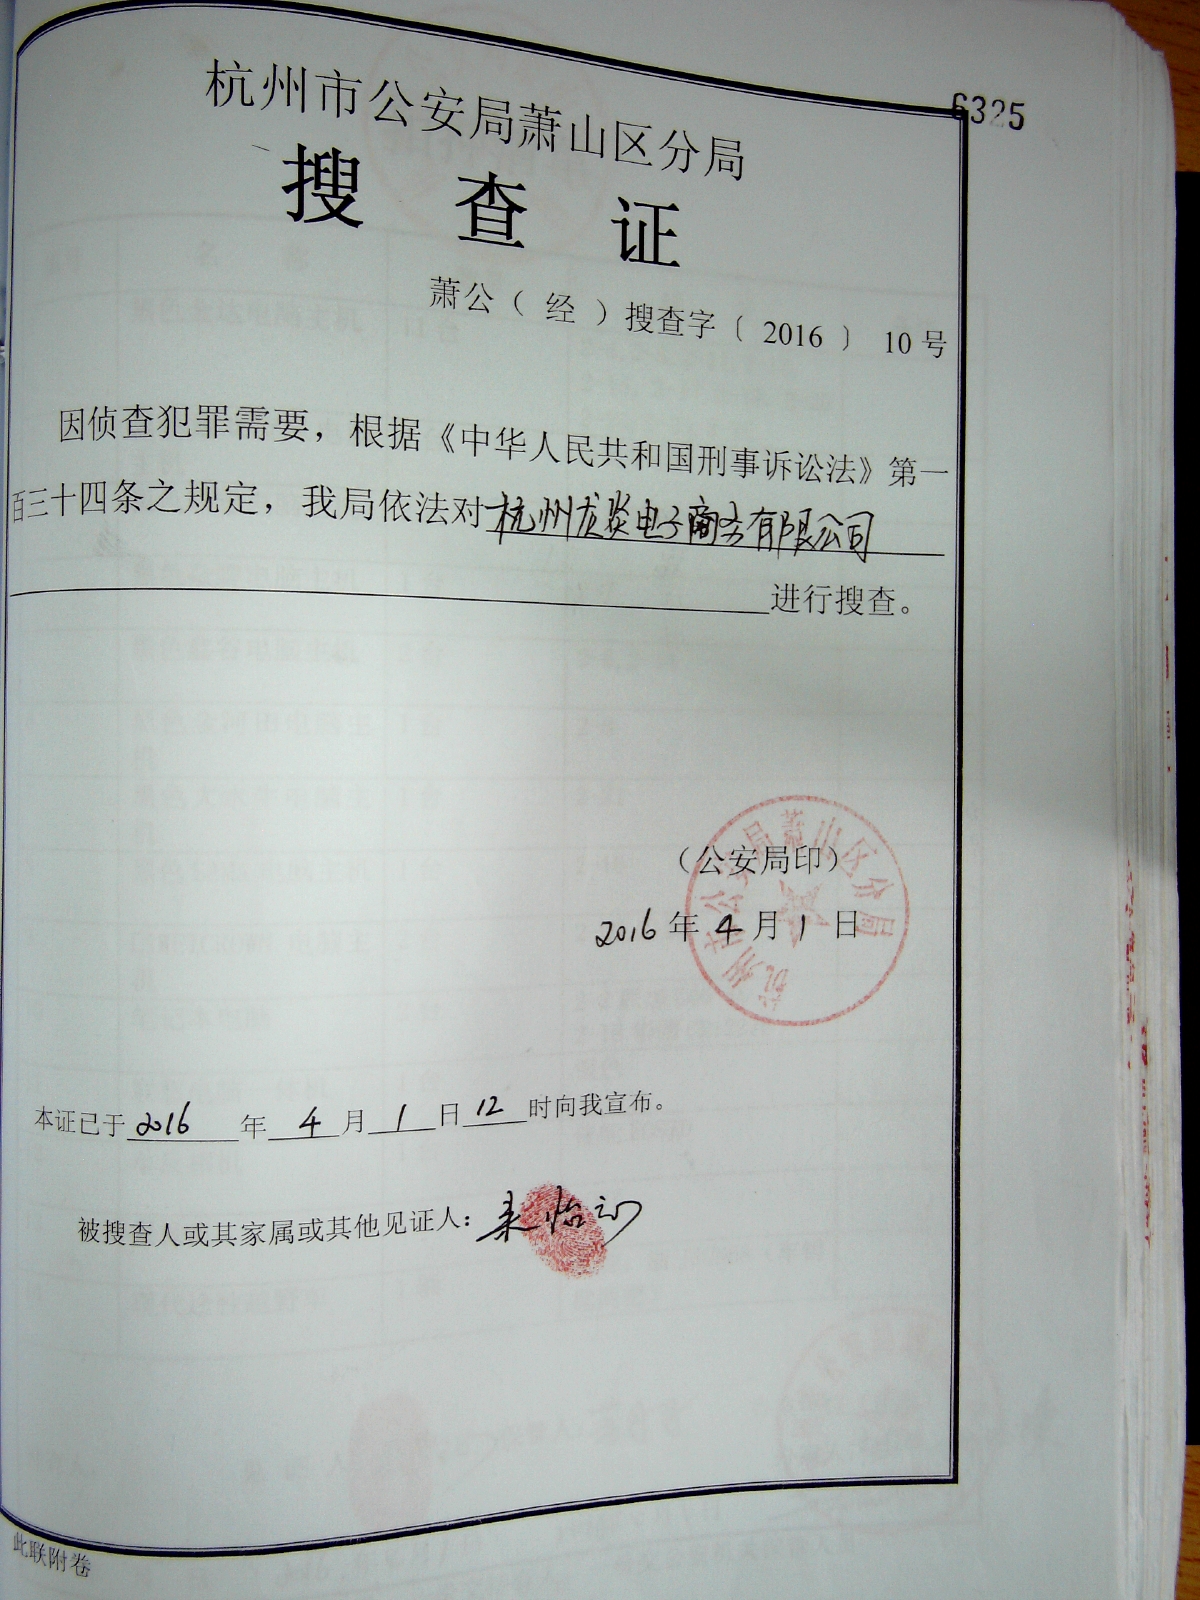 6325
杭州市公安局萧山区分局
搜 查 证
萧公（ 经 ）搜查字〔 2016 〕 10 号
因侦查犯罪需要，根据《中华人民共和国刑事诉讼法》第一
百三十四条之规定，我局依法对杭州龙炎电子商务有限公司
进行搜查。
（公安局印）
2016 年 4 月 1 日
杭州市公安局萧山区分局
本证已于 2016 年 4 月 1 日 12 时向我宣布。
被搜查人或其家属或其他见证人：
此联附卷